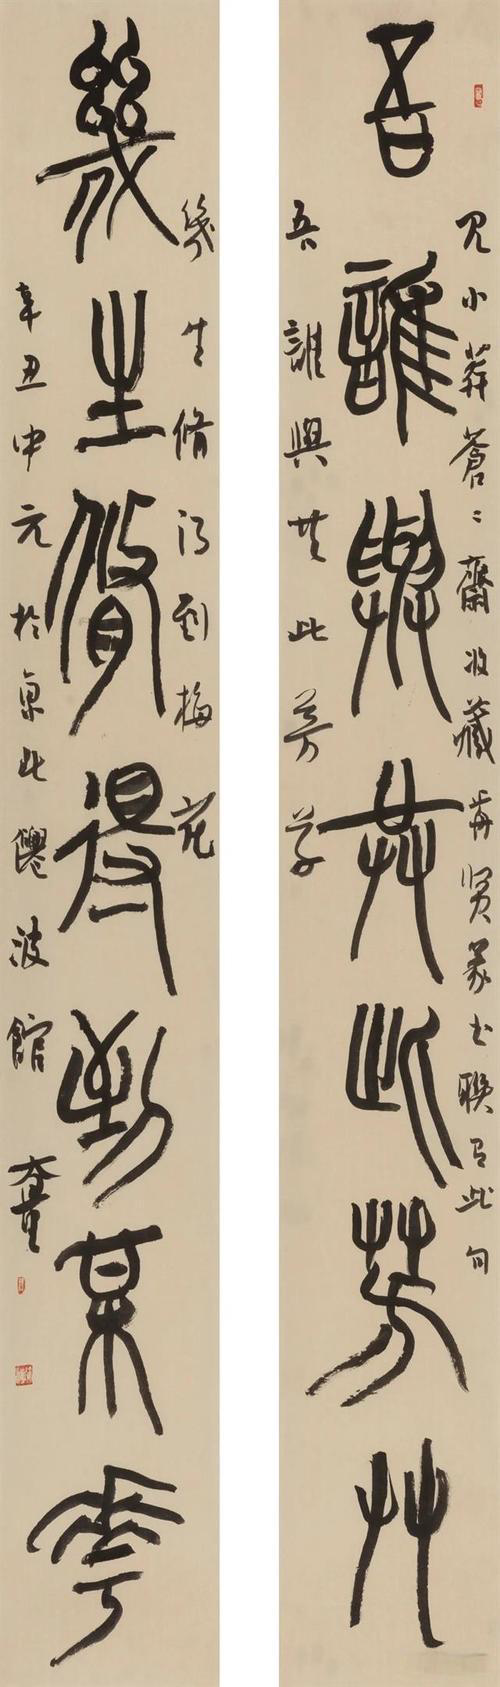 見小莽蒼〻齋收藏前賢篆書聯有此句
吾誰與共此芳艸
吾誰與共此芳草
幾生脩得到梅花
幾生脩得到某華
辛丑中元於京北僊波館